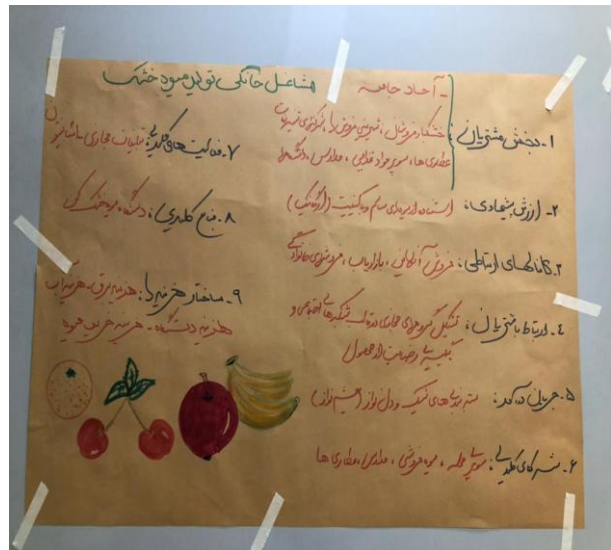 مشاغل خانگی تولید میوه خشک
- آحاد جامعه
۱- بخش مشتریان: خشکبار فروشان، شیرینی فروش ها،
عطاری ها، سوپر مواد غذایی، مدارس، دانشگاه ها
۲- ارزش پیشنهادی: استفاده از میوه های سالم و با کیفیت (ارگانیک)
۳- کانالهای ارتباطی: فروش آنلاین، بازاریاب، فروش های خانوادگی
۴- ارتباط با مشتریان: تشکیل گروههای مجازی در قالب شبکه های اجتماعی و
نظرسنجی رضایت از محصول
۵- جریان درآمد: بسته بندی های شیک و دل نواز (چشم نواز)
۶- شرکای کلیدی: سوپری محله، میوه فروشی، مدارس، عطاری ها
۷- فعالیت های کلیدی: تبلیغات مجازی -
۸- منابع کلیدی: دستگاه میوه خشک کن
۹- ساختار هزینه ها: هزینه برق - هزینه آب
هزینه دستگاه - هزینه خرید میوه